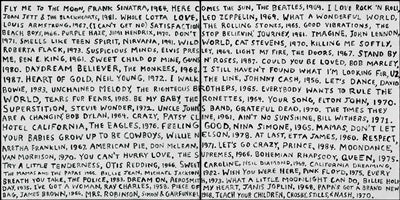 FLY ME TO THE MOON, FRANK SINATRA, 1964. HERE COMES THE SUN, THE BEATLES, 1969. I LOVE ROCK 'N ROLL,
JOAN JETT & THE BLACKHEARTS, 1981. WHOLE LOTTA LOVE, LED ZEPPELIN, 1969. WHAT A WONDERFUL WORLD,
LOUIS ARMSTRONG, 1967. (I CAN'T GET NO) SATISFACTION, THE ROLLING STONES, 1965. GOOD VIBRATIONS, THE
BEACH BOYS, 1966. PURPLE HAZE, JIMI HENDRIX, 1970. DON'T STOP BELIEVIN', JOURNEY, 1981. IMAGINE, JOHN LENNON,
1971. SMELLS LIKE TEEN SPIRIT, NIRVANA, 1991. WILD WORLD, CAT STEVENS, 1970. KILLING ME SOFTLY,
ROBERTA FLACK, 1973. SUSPICIOUS MINDS, ELVIS PRESLEY, 1969. LIGHT MY FIRE, THE DOORS, 1967. STAND BY
ME, BEN E. KING, 1961. SWEET CHILD OF MINE, GUNS N' ROSES, 1987. COULD YOU BE LOVED, BOB MARLEY,
1980. DAYDREAM BELIEVER, THE MONKEES, 1966. I STILL HAVEN'T FOUND WHAT I'M LOOKING FOR, U2,
1987. HEART OF GOLD, NEIL YOUNG, 1972. I WALK THE LINE, JOHNNY CASH, 1956. LET'S DANCE, DAVID
BOWIE, 1983. UNCHAINED MELODY, THE RIGHTEOUS BROTHERS, 1965. EVERYBODY WANTS TO RULE THE
WORLD, TEARS FOR FEARS, 1985. BE MY BABY, THE RONETTES, 1963. YOUR SONG, ELTON JOHN, 1970.
SUPERSTITION, STEVIE WONDER, 1972. UNCLE JOHN'S BAND, GRATEFUL DEAD, 1970. THE TIMES THEY
ARE A CHANGIN', BOB DYLAN, 1964. CRAZY, PATSY CLINE, 1961. AIN'T NO SUNSHINE, BILL WITHERS, 1971.
HOTEL CALIFORNIA, THE EAGLES, 1976. FEELING GOOD, NINA SIMONE, 1965. MAMAS, DON'T LET
YOUR BABIES GROW UP TO BE COWBOYS, WILLIE NELSON, 1978. AT LAST, ETTA JAMES, 1960. RESPECT,
ARETHA FRANKLIN, 1967. AMERICAN PIE, DON MCLEAN, 1971. LET'S GO CRAZY, PRINCE, 1984. MOONDANCE,
VAN MORRISON, 1970. YOU CAN'T HURRY LOVE, THE SUPREMES, 1966. BOHEMIAN RHAPSODY, QUEEN, 1975.
TRY A LITTLE TENDERNESS, OTIS REDDING, 1966. SWEET CAROLINE, NEIL DIAMOND, 1969. CALIFORNIA DREAMING,
THE MAMAS AND THE PAPAS, 1965. BILLIE JEAN, MICHAEL JACKSON, 1982. WISH YOU WERE HERE, PINK FLOYD, 1975. EVERY
BREATH YOU TAKE, THE POLICE, 1983. DREAM ON, AEROSMITH, 1973. WHAT A LITTLE MOONLIGHT CAN DO, BILLIE HOLI
DAY, 1935. I'VE GOT A WOMAN, RAY CHARLES, 1958. PIECE OF MY HEART, JANIS JOPLIN, 1968. PAPA'S GOT A BRAND NEW
BAG, JAMES BROWN, 1965. MRS. ROBINSON, SIMON & GARFUNKEL, TEACH YOUR CHILDREN, CROSBY, STILLS, & NASH, 1970.